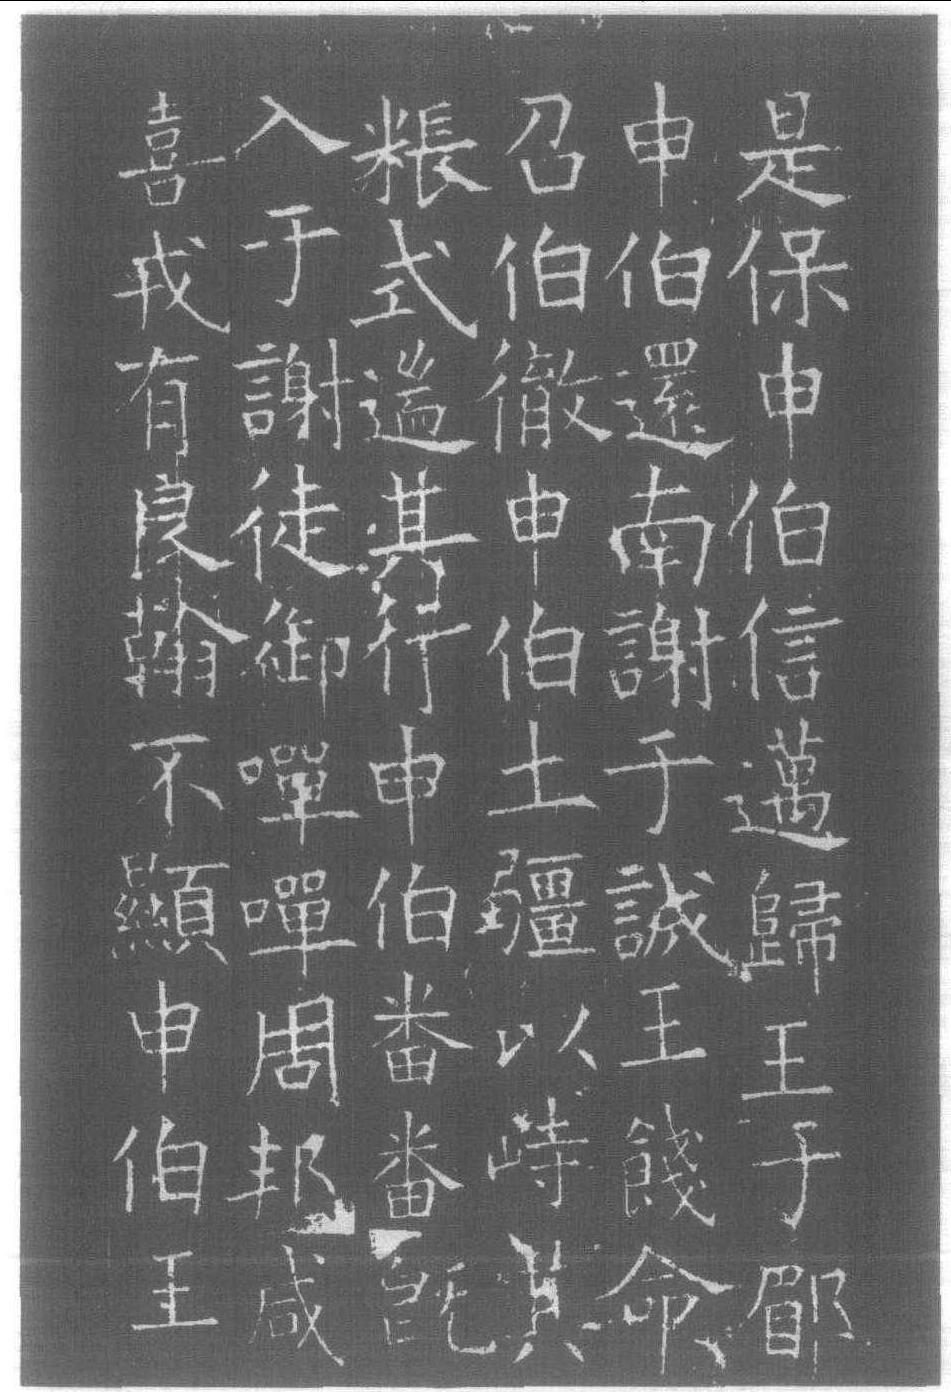 是保申伯信邁歸王于郿
申伯還南謝于誠王餞命
召伯徹申伯土疆以峙其
粻式遄其行申伯番番既
入于謝徒御嘽嘽周邦咸
喜戎有良翰不顯申伯王